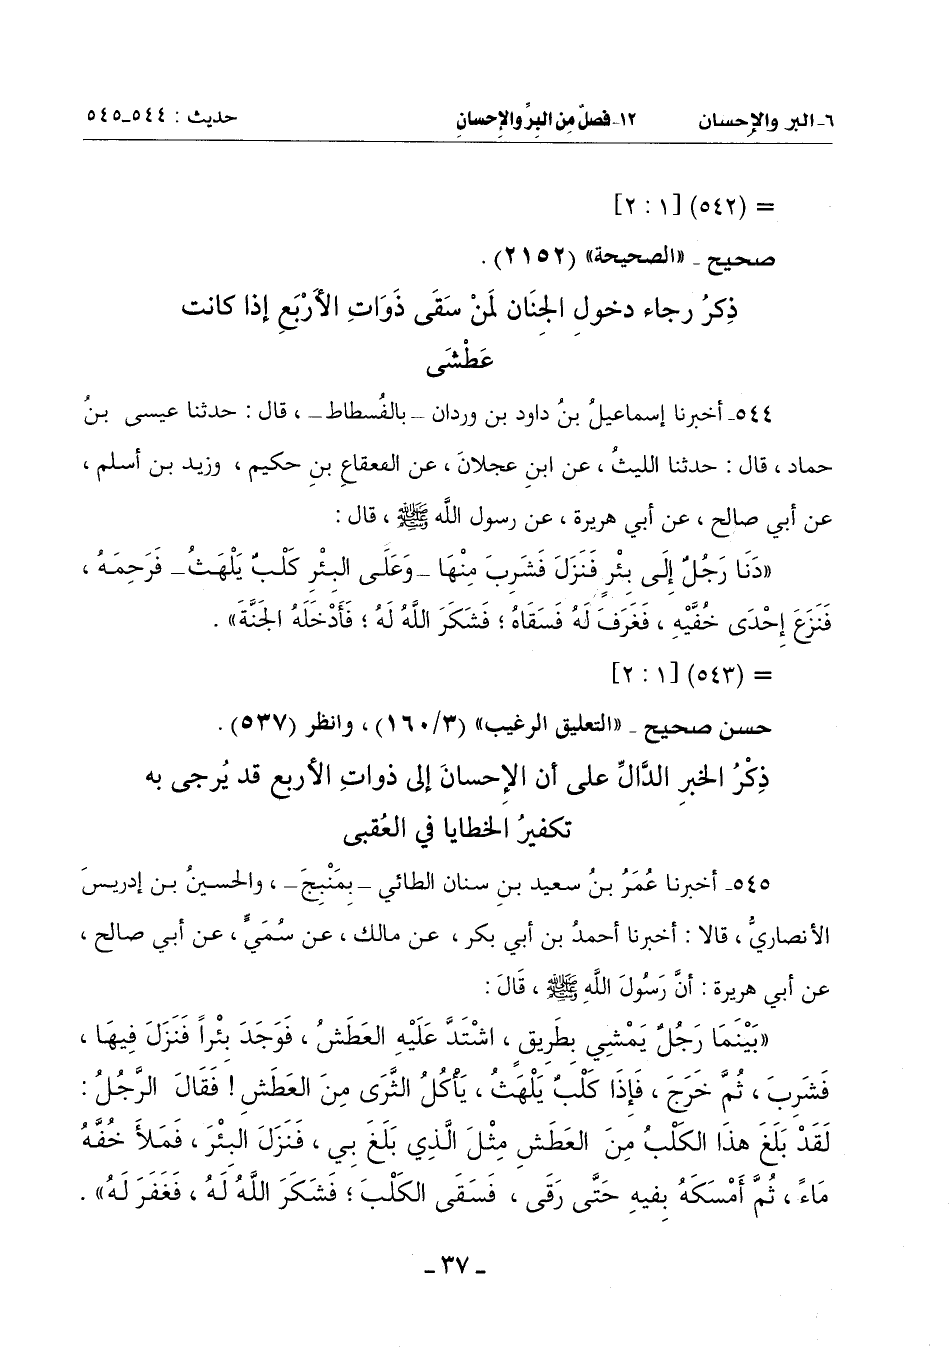 ٦ـ البر والإحسان ١٢ـ فصلٌ مِن البِرِّ والإحسانِ حديث : ٥٤٤ـ٥٤٥
= (٥٤٢) [١ : ٢]
صحيح ـ «الصحيحة» (٢١٥٢) .
ذِكرُ رجاء دخولِ الجِنَان لمَنْ سَقَى ذَوَاتِ الأَرْبَعِ إذا كانت
عَطْشَى
٥٤٤ـ أخبرنا إسماعيلُ بنُ داود بن وردان ـ بالفُسطاط ـ ، قال : حدثنا عيسى بنُ
حماد ، قال : حدثنا الليثُ ، عن ابنِ عجلانَ ، عن القعقاعِ بنِ حكيم ، وزيد بن أسلم ،
عن أبي صالح ، عن أبي هريرة ، عن رسول اللَّه ﷺ ، قال :
«دَنَا رَجُلٌ إِلَى بِئْرٍ فَنَزَلَ فَشَرِبَ مِنْهَا ـ وَعَلَى البِئْرِ كَلْبٌ يَلْهَثُ ـ فَرَحِمَهُ ،
فَنَزَعَ إِحْدَى خُفَّيْهِ ، فَغَرَفَ لَهُ فَسَقَاهُ ؛ فَشَكَرَ اللَّهُ لَهُ ؛ فَأَدْخَلَهُ الجَنَّةَ» .
= (٥٤٣) [١ : ٢]
حسن صحيح ـ «التعليق الرغيب» (٣/ ١٦٠) ، وانظر (٥٣٧) .
ذِكْرُ الخبرِ الدَّالِّ على أن الإحسانَ إلى ذواتِ الأربع قد يُرجى به
تكفيرُ الخطايا في العُقبى
٥٤٥ـ أخبرنا عُمَرُ بنُ سعيد بن سنان الطائي ـ بِمَنْبِجَ ـ ، والحسينُ بن إدريسَ
الأنصاريُّ ، قالا : أخبرنا أحمدُ بن أبي بكر ، عن مالك ، عن سُمَيٍّ ، عن أبي صالح ،
عن أبي هريرة : أنَّ رَسُولَ اللَّهِ ﷺ ، قَالَ :
«بَيْنَمَا رَجُلٌ يَمْشِي بِطَرِيقٍ ، اشْتَدَّ عَلَيْهِ العَطَشُ ، فَوَجَدَ بِئْراً فَنَزَلَ فِيهَا ،
فَشَرِبَ ، ثُمَّ خَرَجَ ، فَإِذَا كَلْبٌ يَلْهَثُ ، يَأْكُلُ الثَّرَى مِنَ العَطَشِ ! فَقَالَ الرَّجُلُ :
لَقَدْ بَلَغَ هذَا الكَلْبُ مِنَ العَطَشِ مِثْلَ الَّذِي بَلَغَ بِي ، فَنَزَلَ البِئْرَ ، فَمَلأَ خُفَّهُ
مَاءً ، ثُمَّ أَمْسَكَهُ بِفيهِ حَتَّى رَقَى ، فَسَقَى الكَلْبَ ؛ فَشَكَرَ اللَّهُ لَهُ ، فَغَفَرَ لَهُ» .
ـ ٣٧ ـ